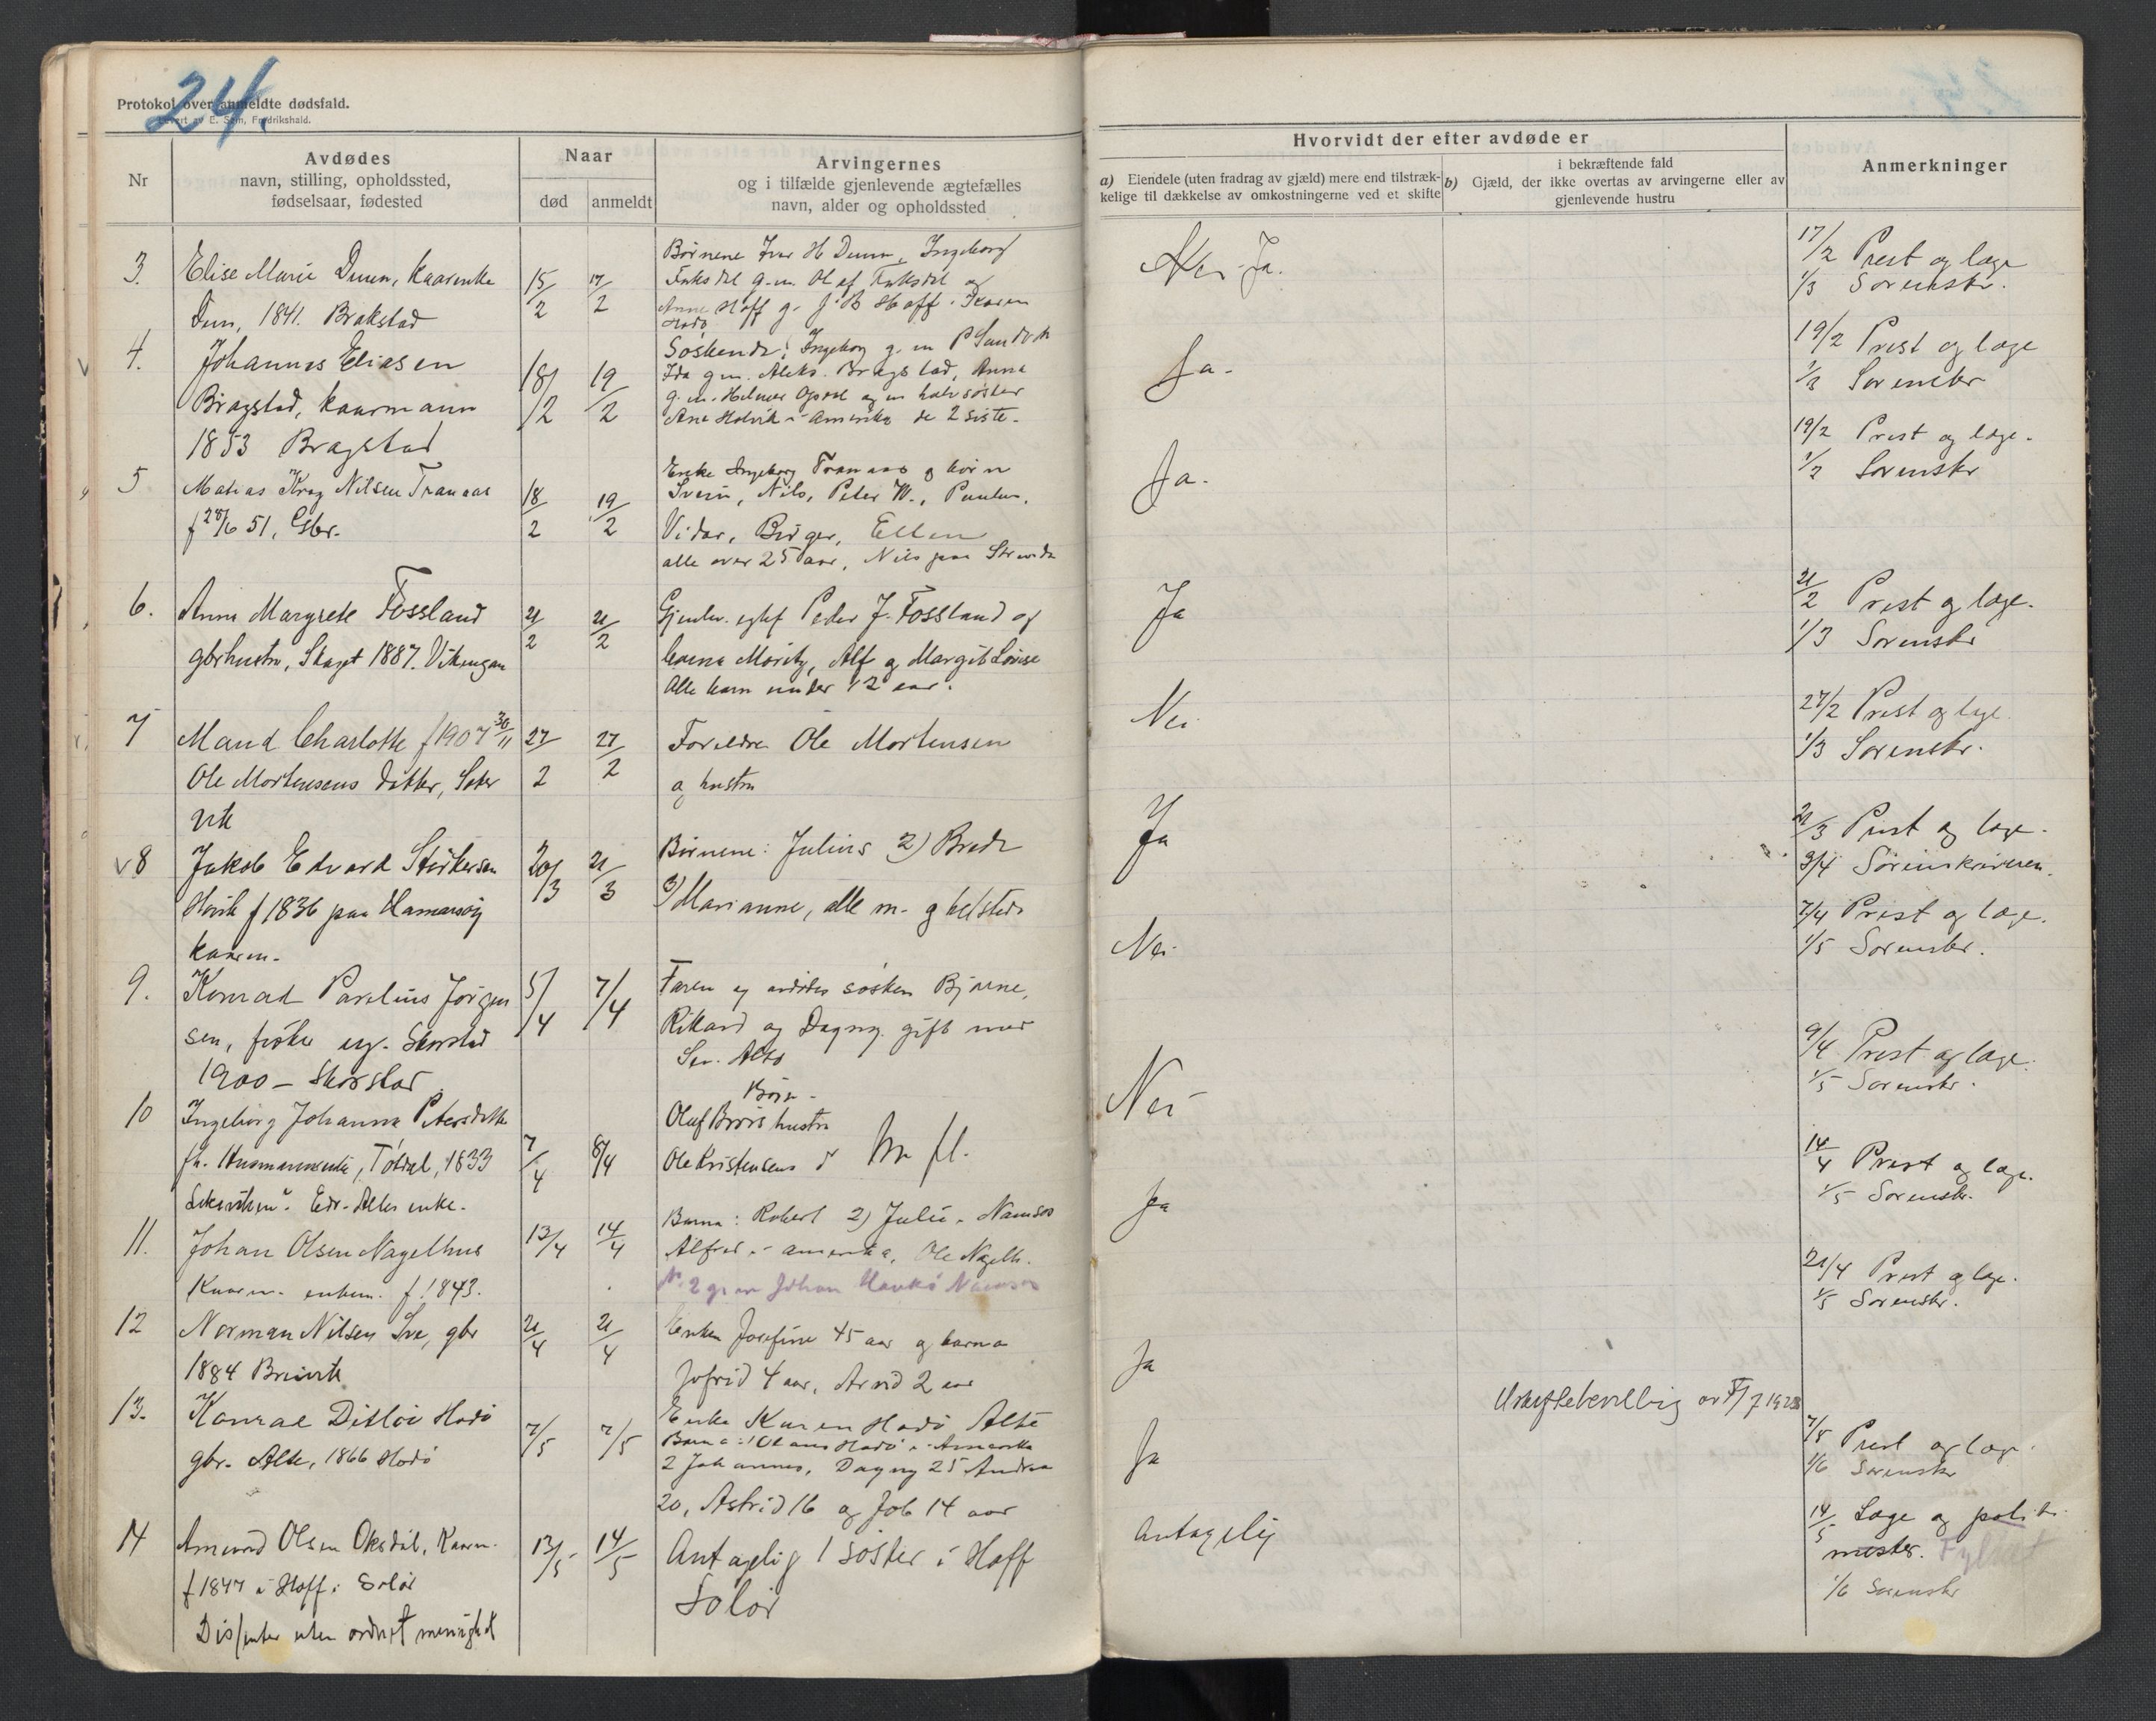 24.
Protokol over anmeldte dødsfald.
Levert av E. Sem, Fredrikshald.
Nr
Avdødes
navn, stilling, opholdssted,
fødselsaar, fødested
Naar
død
anmeldt
Arvingernes
og i tilfælde gjenlevende ægtefælles
navn, alder og opholdssted
Hvorvidt der efter avdøde er
a) Eiendele (uten fradrag av gjæld) mere end tilstræk-
kelige til dækkelse av omkostningerne ved et skifte
i bekræftende fald
b) Gjæld, der ikke overtas av arvingerne eller av
gjenlevende hustru
Anmerkninger
3.
Elise Marie Duun, kaarenke
Duun, 1841. Brakstad
15/2
17/2
Børnene Ivar H Duun, Ingeborg
Faksdal g.m. Olaf Faksdal og
Anne Hoff g. J B Hoff. Karen
Hodø
Nei - Ja.
17/2 Prest og læge
1/3 Sorenskr.
4.
Johannes Eliasen
Bragstad, kaarmann
1853 Bragstad
18/2
19/2
Søskende: Ingeborg g. m P Sandvik
Ida g.m. Aleks. Bragstad, Anna
g.m. Helmer Opdal og en halvsøster
Ane Holvik i Amerika de 2 siste.
Ja.
19/2 Prest og læge
1/3 Sorenskr
5
Matias Krog Nilsen Tranaas
f 28/6 51. Gbr.
18/2
19/2
Enke Ingeborg Tranaas og børn
Svein, Nils, Peter M., Paulus,
Vidar, Birger, Ellen
alle over 25 aar, Nils paa Strinda
Ja.
19/2 Prest og læge.
1/3 Sorenskr
6.
Anna Margrete Fossland
gbrhustru, Skaget 1887. Vikengan
21/2
21/2
Gjenlev. egtef Peder J. Fossland og
barna Moritz, Alf og Margit Lovise
Alle barn under 12 aar.
Ja
21/2 Prest og læge.
1/3 Sorenskr
7
Maud Charlotte f 1907 30/11
Ole Mortensens datter, Seter
vik
27/2
27/2
Foreldre Ole Mortensen
og hustru
Nei
27/2 Prest og læge
1/3 Sorenskr.
v 8
Jakob Edvard Størkersen
Hovik f 1836 paa Hamarøy
kaarm.
20/3
21/3
Børnene: Julius 2) Brede
3) Marianne, alle m. og bosteds
Ja
21/3 Prest og læge.
3/4 Sorenskriveren.
9.
Konrad Parelius Jørgen
sen, fisker ug. Skorstad
1900 - Skorstad
5/4
7/4
Faren og avdødes søsken Bjarne,
Rikard og Dagny gift med
Sev. Alte
Nei
7/4 Prest og læge.
1/5 Sorenskr.
10
Ingeborg Johanna Petersdatter
fh. Husmannsenke, Tøtdal, 1833
Edv. Altes enke.
7/4
8/4
Børn -
Oluf Brørs hustru
Ole Kristensens d
m fl.
Nei
9/4 Prest og læge.
1/5 Sorenskr.
11.
Johan Olsen Nagelhus
Kaarm. enkem. f. 1843.
13/4
14/4
Barna: Robert 2) Julie - Namsos
Alfred i Amerika, Ole Nagelh.
Nr. 2 g. m Johan Havkø Namsos
Ja
14/4 Prest og læge.
1/5 Sorenskr.
12
Norman Nilsen Sve, gbr
1884 Breivik
21/4
21/4
Enken Josefine 45 aar og barna
Jofrid 4 aar, Arvid 2 aar
Ja
21/4 Prest og læge.
1/5 Sorenskr.
13.
Konrad Ditløi Hodø
gbr. Alte, 1866 Hodø
7/5
7/5
Enke Karen Hodø Alte
Barna: 1 Olaus Hodø i Amerika
2 Johannes, Dagny 25 Andrea
20, Astrid 16 og Job 14 aar
Ja
Uskiftebevilling av 5/7 1923
7/5 Prest og læge.
1/6 Sorenskr
14
Amund Olsen Oksdal, Kaarm.
f 1847 i Hoff i Solør
Dissenter uten ordnet menighet
13/5
14/5
Antagelig 1 søster i Hoff
Solør
Antagelig
14/5 Læge og politi
mester. Fylket
1/6 Sorenskr